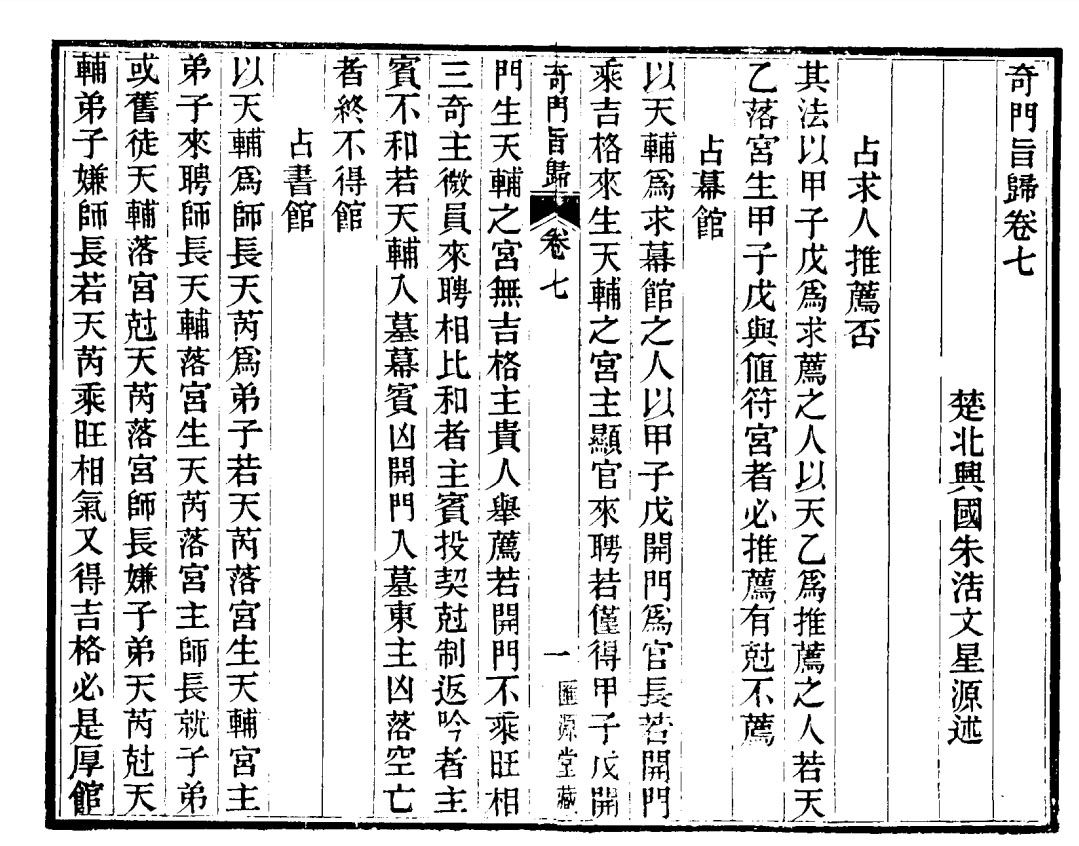 奇門旨歸卷七
楚北興國朱浩文星源述
占求人推薦否
其法以甲子戊爲求薦之人以天乙爲推薦之人若天
乙落宮生甲子戊與値符宮者必推薦有尅不薦
占幕館
以天輔爲求幕館之人以甲子戊開門爲官長若開門
乘吉格來生天輔之宮主顯官來聘若僅得甲子戊開
奇門旨歸 卷七 一 匯源堂藏
門生天輔之宮無吉格主貴人舉薦若開門不乘旺相
三奇主微員來聘相比和者主賓投契尅制返吟者主
賓不和若天輔入墓幕賓凶開門入墓東主凶落空亡
者終不得館
占書館
以天輔爲師長天芮爲弟子若天芮落宮生天輔宮主
弟子來聘師長天輔落宮生天芮落宮主師長就子弟
或舊徒天輔落宮尅天芮落宮師長嫌子弟天芮尅天
輔弟子嫌師長若天芮乘旺相氣又得吉格必是厚館